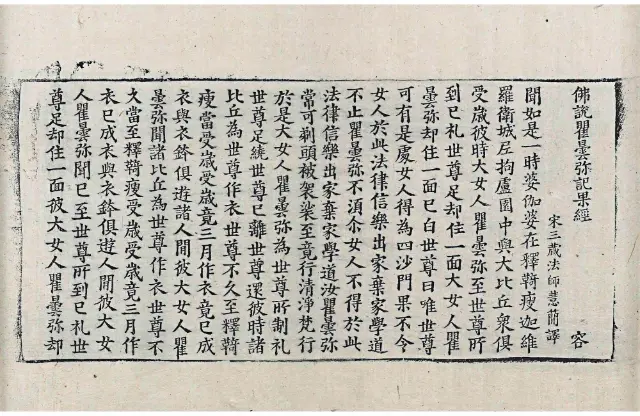 佛說瞿曇弥記果經 容
宋三藏法師慧簡譯
聞如是一時婆伽婆在釋鞞瘦迦維
羅衛城尼拘盧園中與大比丘衆俱
受歲彼時大女人瞿曇弥至世尊所
到已礼世尊足却住一面大女人瞿
曇弥却住一面已白世尊曰唯世尊
可有是處女人得為四沙門果不令
女人於此法律信樂出家棄家學道
不止瞿曇弥不湏尒女人不得於此
法律信樂出家棄家學道汝瞿曇弥
常可剃頭被袈裟至竟行清淨梵行
於是大女人瞿曇弥為世尊所制礼
世尊足繞世尊已離世尊還彼時諸
比丘為世尊作衣世尊不久至釋鞞
瘦當受歲受歲竟三月作衣竟已成
衣與衣鉢俱遊諸人間彼大女人瞿
曇弥聞諸比丘為世尊作衣世尊不
久當至釋鞞瘦受歲受歲竟三月作
衣已成衣與衣鉢俱遊人間彼大女
人瞿曇弥聞已至世尊所到已礼世
尊足却住一面彼大女人瞿曇弥却